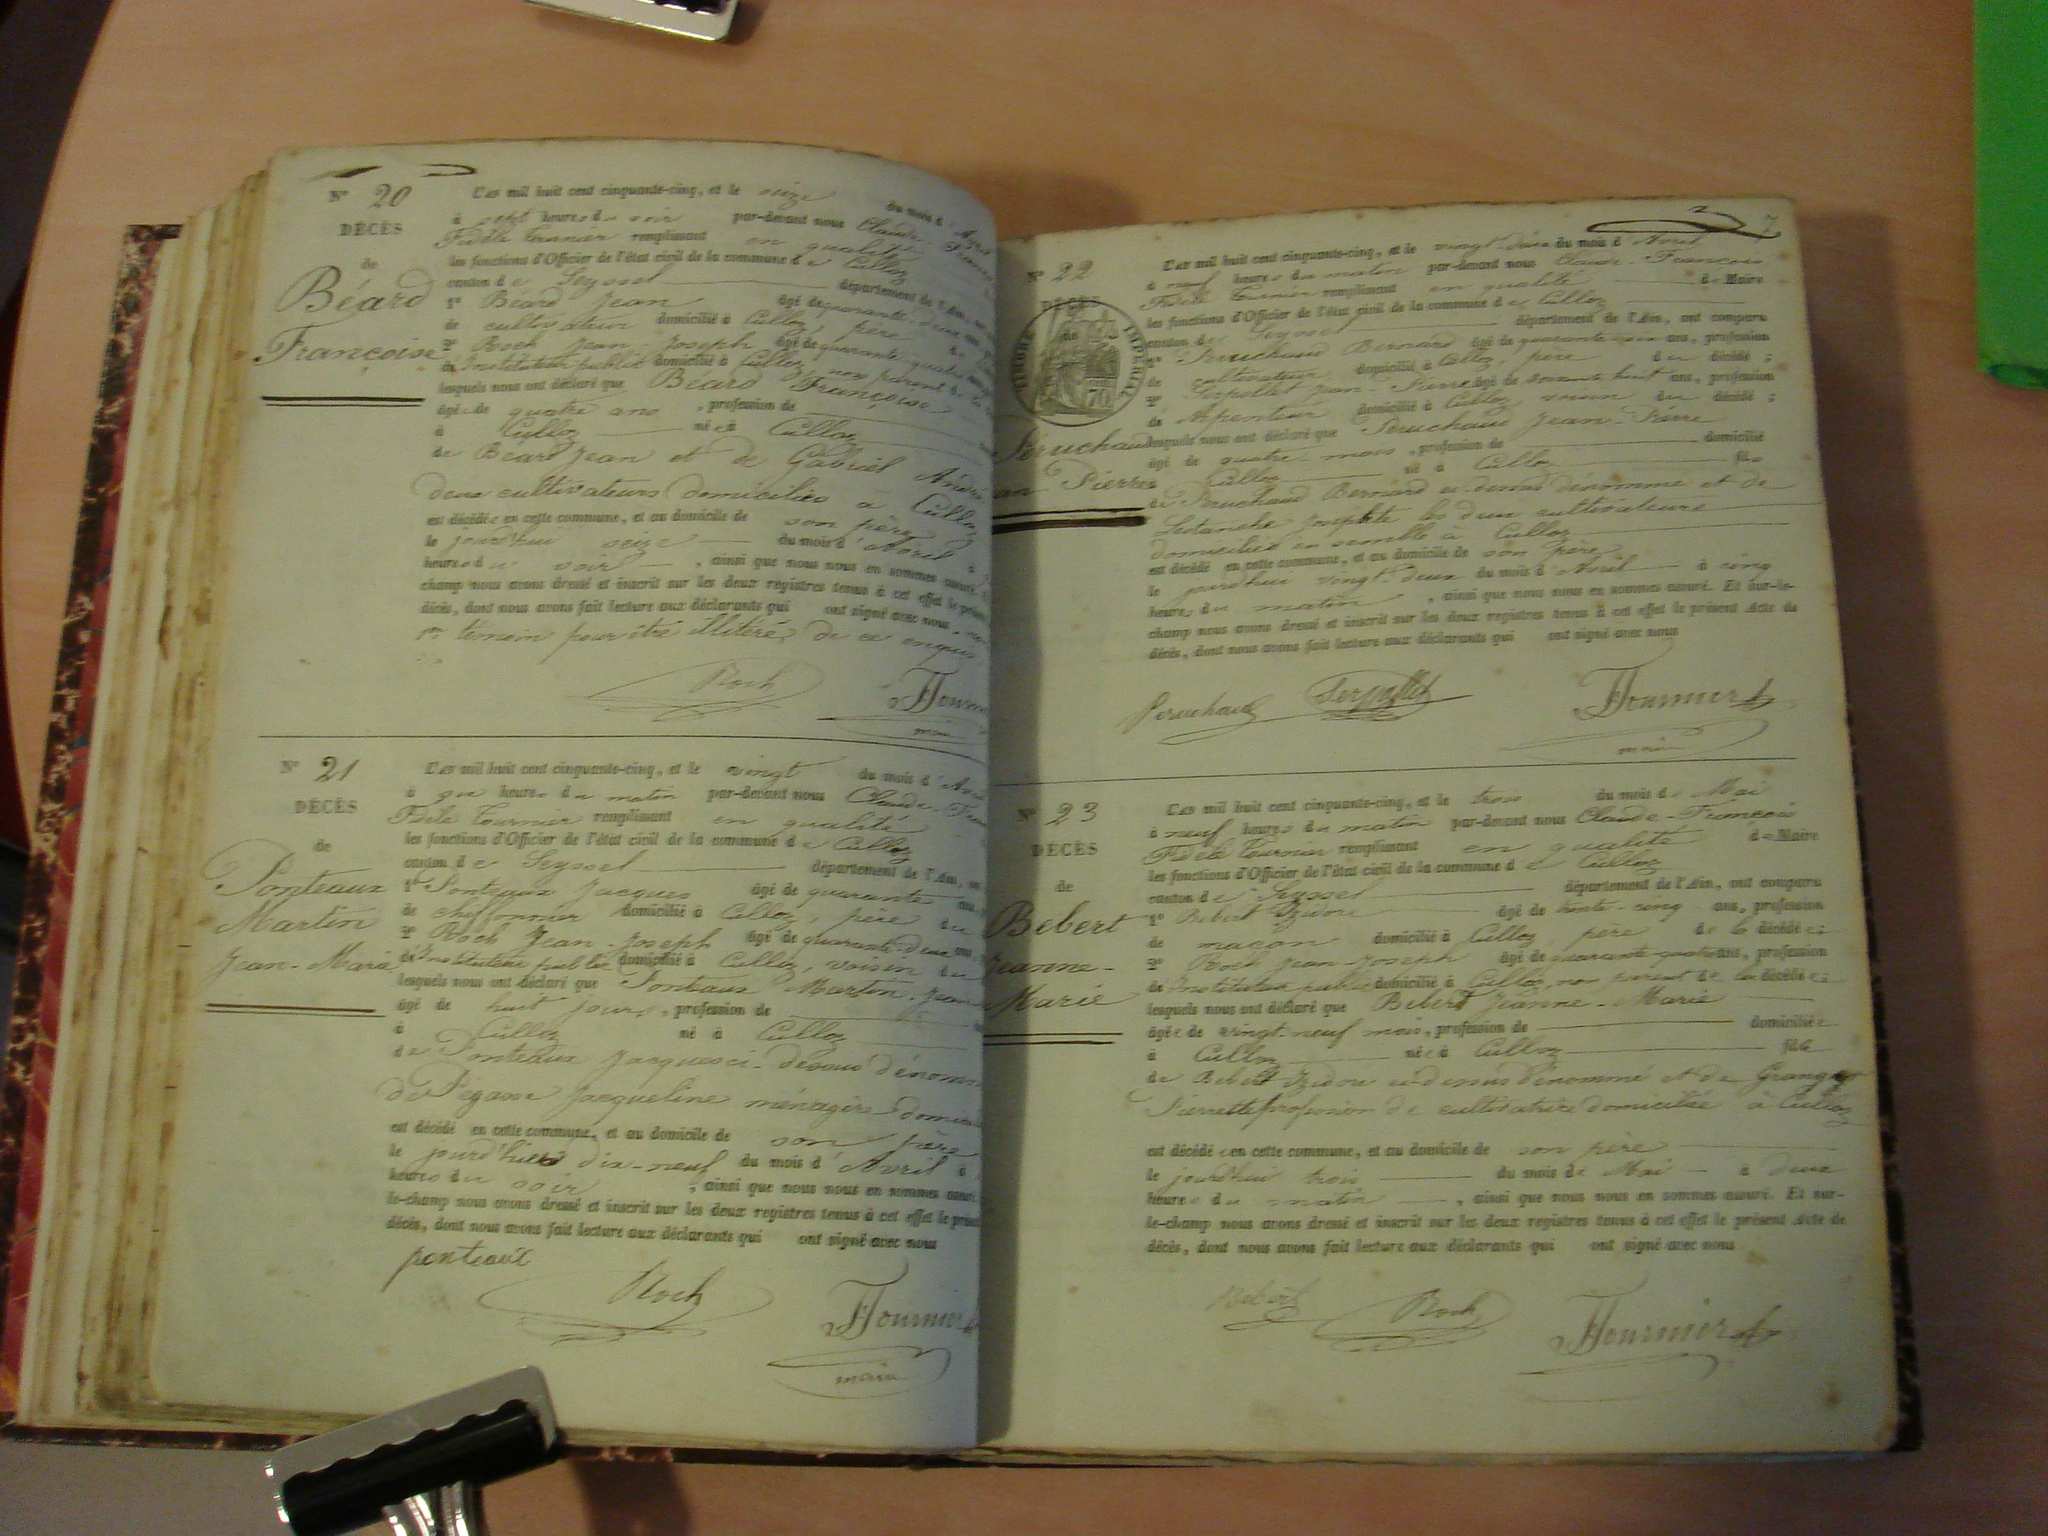 N° 20
DÉCÈS
de
Béard
Françoise
L'an mil huit cent cinquante-cinq, et le seize du mois d'
à sept heures du soir par-devant nous Claude
Fidèle Tournier remplissant en qualité
les fonctions d'Officier de l'état civil de la commune de Culloz
canton de Seyssel département de l'Ain,
1° Béard Jean âgé de quarante
de cultivateur domicilié à Culloz, père
2° Roch Jean-Joseph âgé de quarante quatre
de Instituteur public domicilié à Culloz, non parent de la
lesquels nous ont déclaré que Béard Françoise
âgée de quatre ans, profession de
à Culloz née à Culloz
de Béard Jean et de Gabriel
deux cultivateurs domiciliés à Culloz
est décédée en cette commune, et au domicile de son père
le jourd'hui seize du mois d'Avril à
heures du soir, ainsi que nous nous en sommes assuré.
champ nous avons dressé et inscrit sur les deux registres tenus à cet effet le
décès, dont nous avons fait lecture aux déclarants qui ont signé avec nous
1er témoin pour être illitéré, de ce enquis
Roch
maire
N° 21
DÉCÈS
de
Ponteaux
Martin
Jean-Marie
L'an mil huit cent cinquante-cinq, et le vingt du mois d'
à heures du matin par-devant nous Claude
Fidèle Tournier remplissant en qualité
les fonctions d'Officier de l'état civil de la commune de Culloz
canton de Seyssel département de l'Ain,
1° Ponteaux Jacques âgé de quarante
de chiffonnier domicilié à Culloz, père du
2° Roch Jean-Joseph âgé de quarante
de Instituteur public domicilié à Culloz, voisin du
lesquels nous ont déclaré que Ponteaux Martin
âgé de huit jours, profession de
à Culloz né à Culloz
de Ponteaux Jacques ci-dessus
de Jacqueline ménagère
est décédé en cette commune, et au domicile de son père
le jourd'hier dix-neuf du mois d'Avril à
heures du soir, ainsi que nous nous en sommes assuré.
le-champ nous avons dressé et inscrit sur les deux registres tenus à cet effet le
décès, dont nous avons fait lecture aux déclarants qui ont signé avec nous
ponteaux
Roch
Tournier
maire
7
N° 22
DÉCÈS
de
TIMBRE IMPÉRIAL
70
Peruchaud
Pierre
L'an mil huit cent cinquante-cinq, et le vingt-deux du mois d'Avril
à neuf heures du matin par-devant nous Claude-François
Fidèle Tournier remplissant en qualité de Maire
les fonctions d'Officier de l'état civil de la commune de Culloz
canton de Seyssel département de l'Ain, ont comparu
1° Peruchaud Bernard âgé de quarante ans, profession
de cultivateur domicilié à Culloz, père du décédé;
2° Serpollet Jean-Pierre âgé de soixante huit ans, profession
de Arpenteur domicilié à Culloz voisin du décédé;
lesquels nous ont déclaré que Peruchaud Jean-Pierre
âgé de quatre mois, profession de domicilié
Culloz né à Culloz fils
de Peruchaud Bernard ci-dessus dénommé et de
Josephte les deux cultivateurs
domiciliés ensemble à Culloz
est décédé en cette commune, et au domicile de son père
le jourd'hui vingt-deux du mois d'Avril à cinq
heures du matin, ainsi que nous nous en sommes assuré. Et sur-le-
champ nous avons dressé et inscrit sur les deux registres tenus à cet effet le présent Acte de
décès, dont nous avons fait lecture aux déclarants qui ont signé avec nous
Peruchaud
Serpollet
Tournier
maire
N° 23
DÉCÈS
de
Bebert
Jeanne-
Marie
L'an mil huit cent cinquante-cinq, et le trois du mois de Mai
à neuf heures du matin par-devant nous Claude-François
Fidèle Tournier remplissant en qualité de Maire
les fonctions d'Officier de l'état civil de la commune de Culloz
canton de Seyssel département de l'Ain, ont comparu
1° Bebert Izidore âgé de trente-cinq ans, profession
de maçon domicilié à Culloz, père de la décédée;
2° Roch Jean Joseph âgé de quarante-quatre ans, profession
de Instituteur public domicilié à Culloz, non parent de la décédée;
lesquels nous ont déclaré que Bebert Jeanne-Marie
âgée de vingt-neuf mois, profession de domiciliée
à Culloz née à Culloz fille
de Bebert Izidore ci-dessus dénommé et de
Pierrette profession de cultivatrice domiciliée à Culloz
est décédée en cette commune, et au domicile de son père
le jourd'hui trois du mois de Mai à deux
heures du matin, ainsi que nous nous en sommes assuré. Et sur-
le-champ nous avons dressé et inscrit sur les deux registres tenus à cet effet le présent Acte de
décès, dont nous avons fait lecture aux déclarants qui ont signé avec nous
Bebert
Roch
Tournier